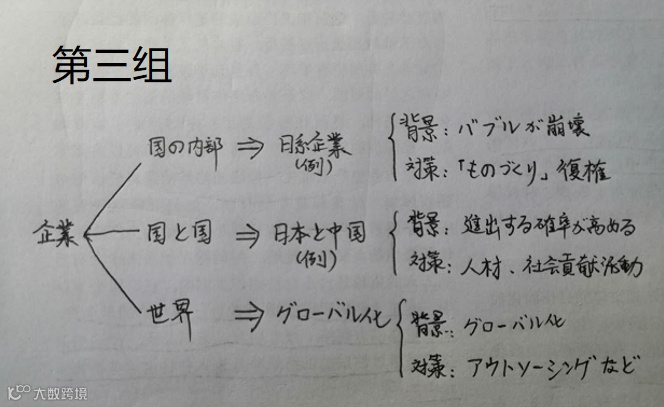 第三组
背景：バブルが崩壊
国の内部 ⇒ 日系企業
(例)
対策：「ものづくり」復権
背景：進出する確率が高める
企業 国と国 ⇒ 日本と中国
(例)
対策：人材、社会貢献活動
世界 ⇒ グローバル化
背景：グローバル化
対策：アウトソーシングなど
大数跨境